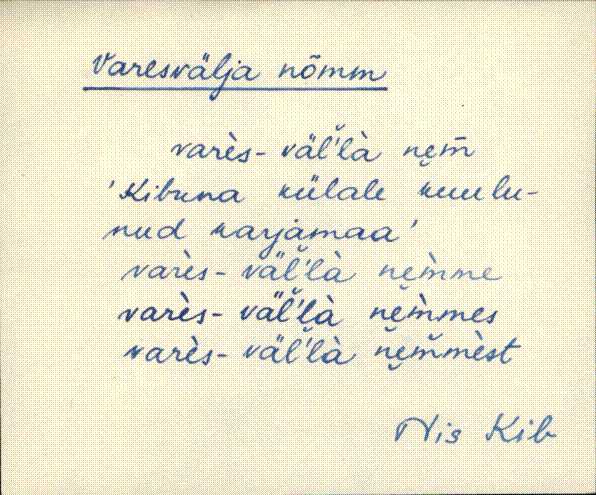 Varesvälja nõmm
varès- väĺ'l̀à ne̮m̄
'Kibuna külale kuulu-
nud karjamaa'
varès- väĺ'l̀à ne̮m̀me
varès- väĺ'l̀à ne̮m̀mes
varès- väĺ'l̀à ne̮m̆mèst
Nis Kib